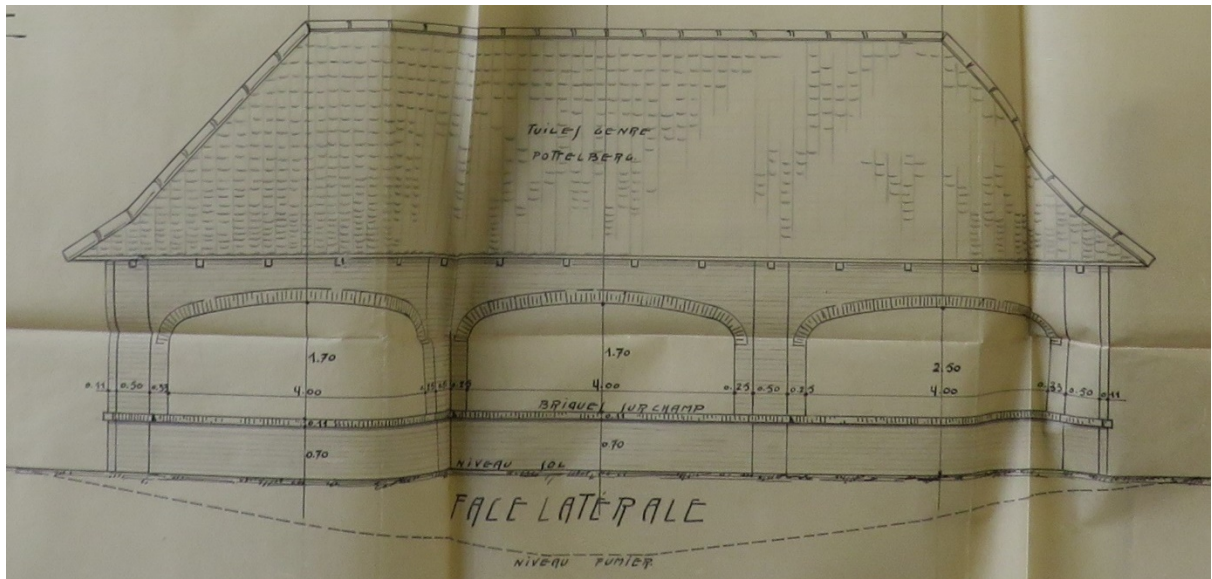 TUILES GENRE
POTTELBERG.
1.70
1.70
2.50
0.11
0.50
4.00
4.00
0.25
0.50
4.00
0.50
0.11
BRIQUES SUR CHAMP
0.11
0.11
0.70
0.70
NIVEAU SOL
FACE LATÉRALE
NIVEAU FUMIER.